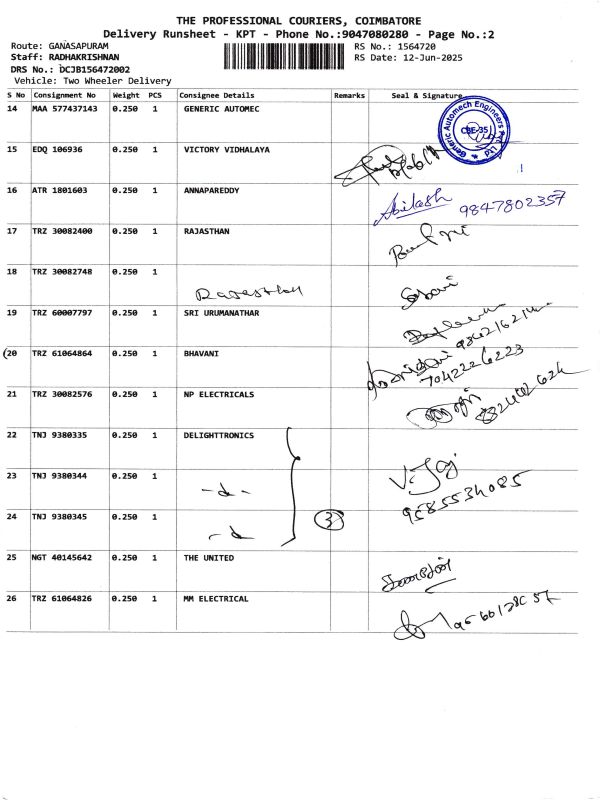 THE PROFESSIONAL COURIERS, COIMBATORE
Delivery Runsheet - KPT - Phone No.:9047080280 - Page No.:2
Route: GANASAPURAM
RS No.: 1564720
Staff: RADHAKRISHNAN
RS Date: 12-Jun-2025
DRS No.: DCJB156472002
Vehicle: Two Wheeler Delivery
S No Consignment No Weight PCS Consignee Details Remarks Seal & Signature
14 MAA 577437143 0.250 1 GENERIC AUTOMEC
Generic Automech Engineers Pvt Ltd
CBE-35
15 EDQ 106936 0.250 1 VICTORY VIDHALAYA
16 ATR 1801603 0.250 1 ANNAPAREDDY
Abilash 9847802357
17 TRZ 30082400 0.250 1 RAJASTHAN
18 TRZ 30082748 0.250 1
Rajasthan
19 TRZ 60007797 0.250 1 SRI URUMANATHAR
20 TRZ 61064864 0.250 1 BHAVANI
7042226223
21 TRZ 30082576 0.250 1 NP ELECTRICALS
22 TNJ 9380335 0.250 1 DELIGHTTRONICS
23 TNJ 9380344 0.250 1 -d-
V. Jaj
9585534085
24 TNJ 9380345 0.250 1 -d
3
25 NGT 40145642 0.250 1 THE UNITED
26 TRZ 61064826 0.250 1 MM ELECTRICAL